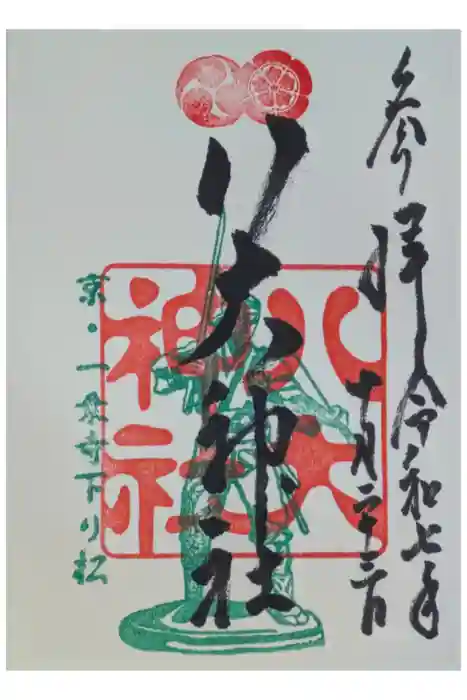 参拝 令和七年
十月二十三日
八大神社
八大
神社
京・一乗寺下り松